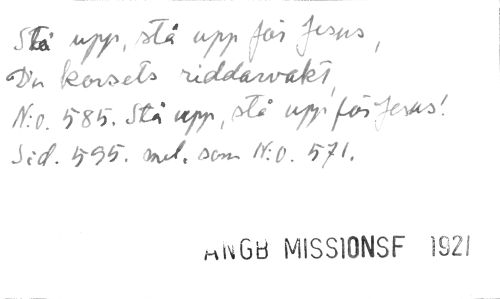 Stå upp, stå upp för Jesus,
Du korsets riddarvakt,
N:o. 585. Stå upp, stå upp för Jesus!
Sid. 595. mel. som N:o. 571.
ANGB MISSIONSF 1921